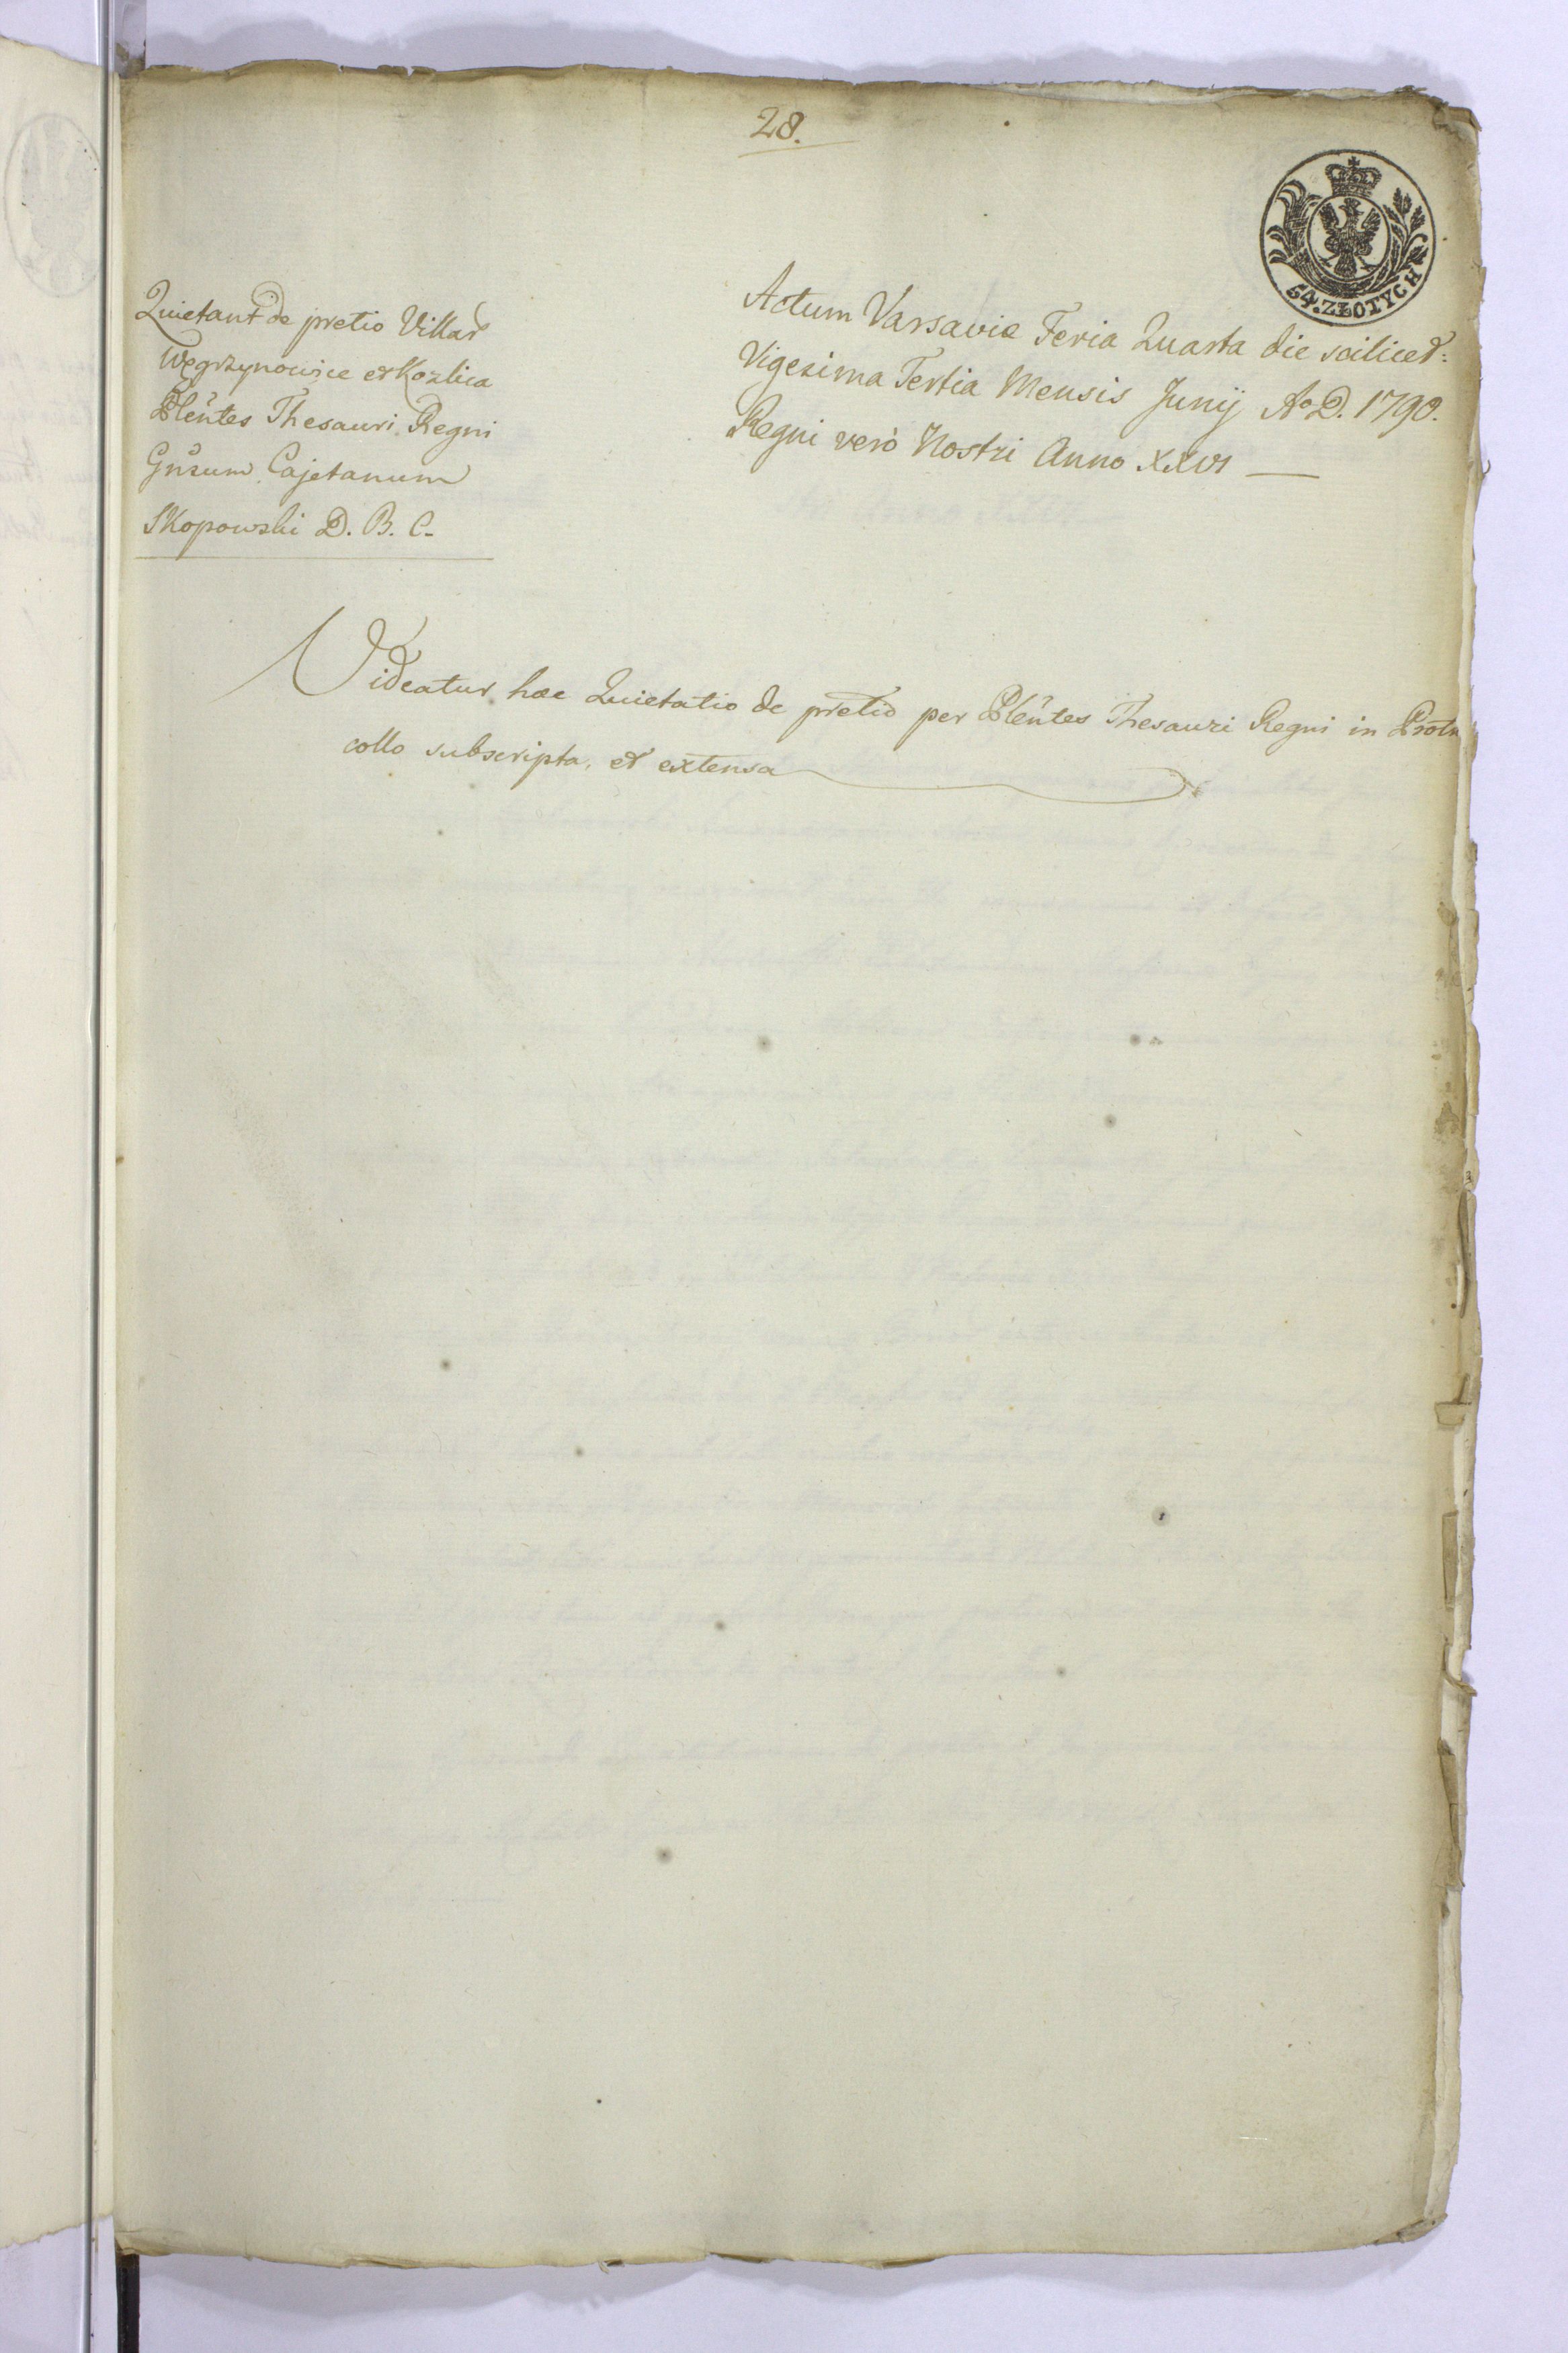 28.
54. ZŁOTYCH
Quietant de pretio Villar
Węgrzynowice et Kozlica
Plentes Thesauri Regni
Gnsum Cajetanum
Skopowski D. B. C.
Actum Varsaviæ Feria Quarta die scilicet:
Vigesima Tertia Mensis Junij Ao D. 1790.
Regni verò Nostri Anno XXVI
Videatur hæc Quietatio de pretio per Plentes Thesauri Regni in Proto
collo subscripta, et extensa